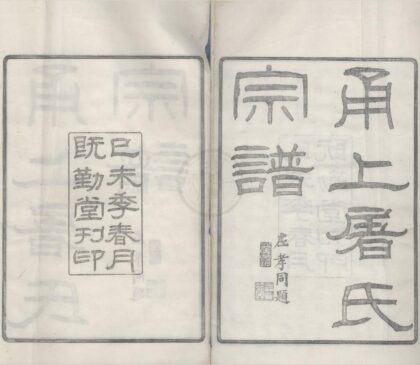 甬上屠氏
宗譜
左孝同題
己未季春月
既勤堂刊印